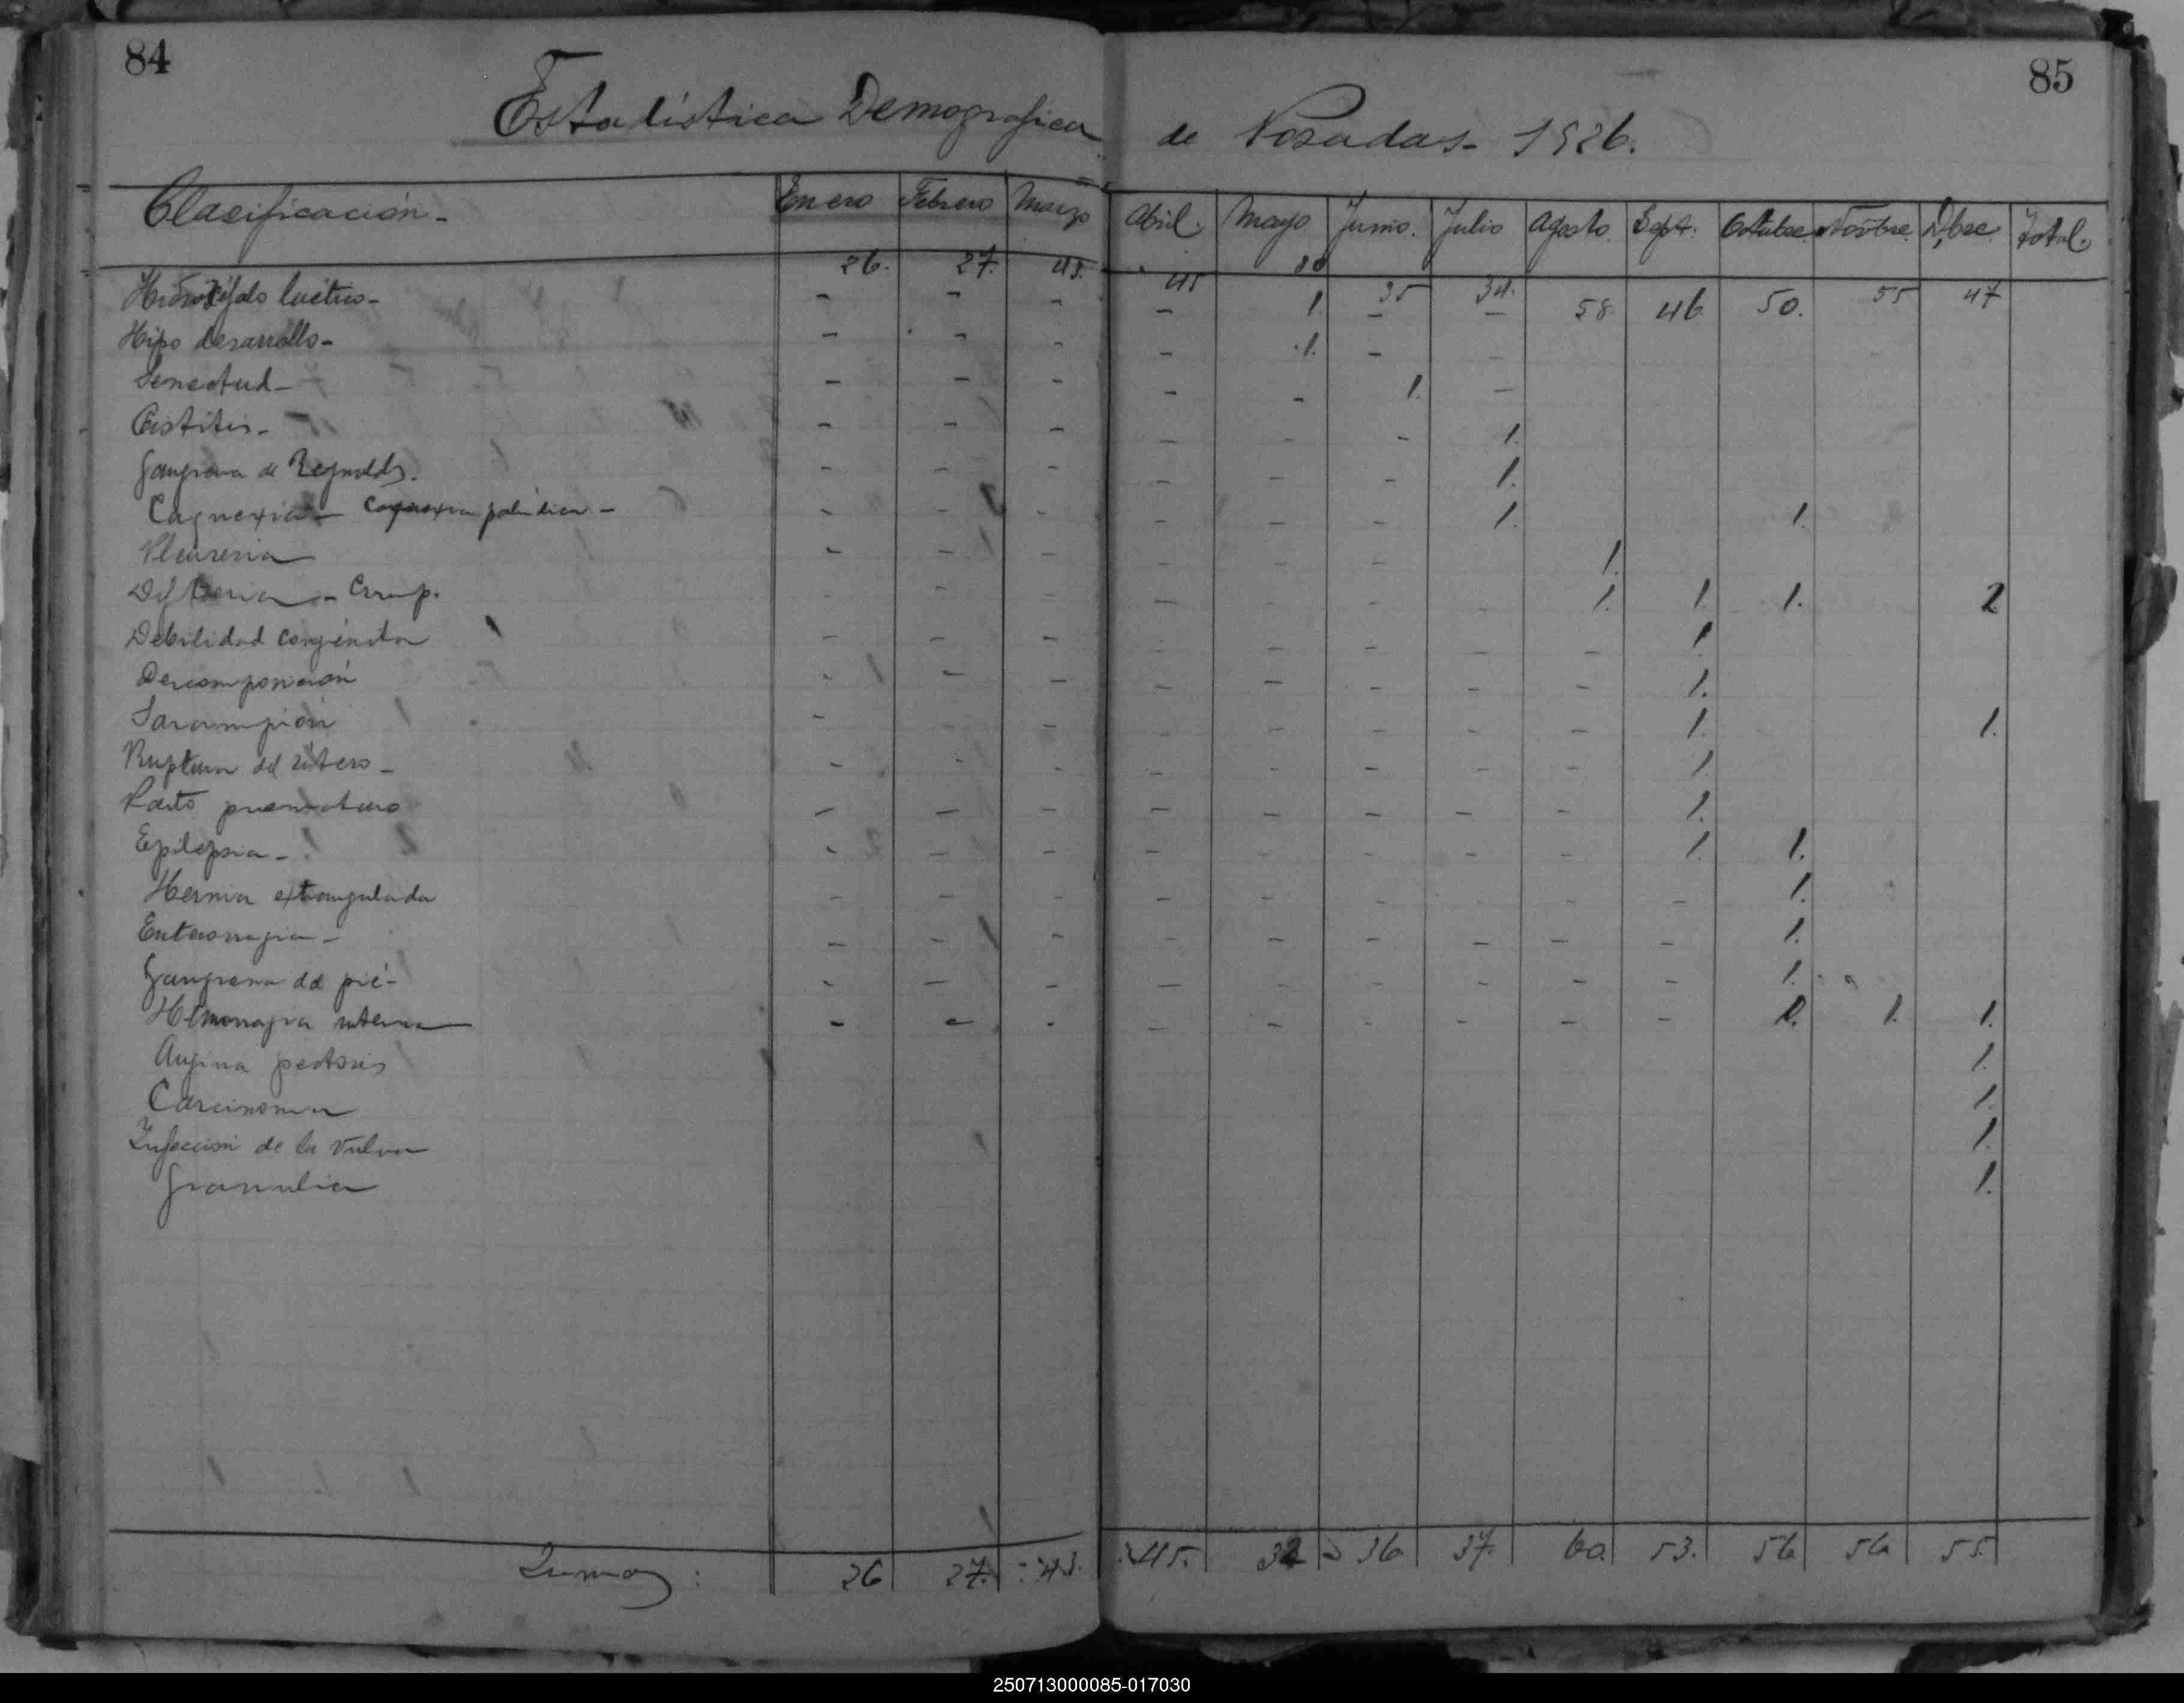 84
85
Estadística Demografica de Posadas - 1926.
Clasificación - Enero Febrero Marzo Abril. Mayo Junio. Julio Agosto. Sept. Octubre. Novbre. Dbre Total.
26. 27. 43. 45 30 35 34. 58 46. 50. 55 47
Hidrocéfalo - - - - 1. - -
Hipo desarrollo - - - - - 1. - -
Senectud - - - - - - 1. -
Cistitis - - - - - - - 1.
Gangrena de Reynolds. - - - - - - 1.
Caquexia - Caquexia palúdica - - - - - - - 1. 1.
Pleuresia - - - - - - 1.
Difteria - Crup. - - - - - - 1. 1. 1. 2
Debilidad congénita - - - - - - - - 1
Descomposición - - - - - - - - 1.
Sarampión - - - - - - - 1. 1.
Ruptura del útero - - - - - - - - - 1.
Parto prematuro - - - - - - - 1.
Epilepsia - - - - - - - - - 1. 1.
Hernia extrangulada - - - - - - - - - 1.
Enterorragia - - - - - - - - - - 1.
Gangrena del pié - - - - - - - - - - 1.
Hemorragia interna - - - - - - - - - 1. 1. 1.
Angina pectoris 1.
Carcinoma 1.
Infección de la Vulva 1.
Granulia 1.
Suma : 26 27. 43. 45. 32 36 37. 60. 53. 56 56 55.
250713000085-017030